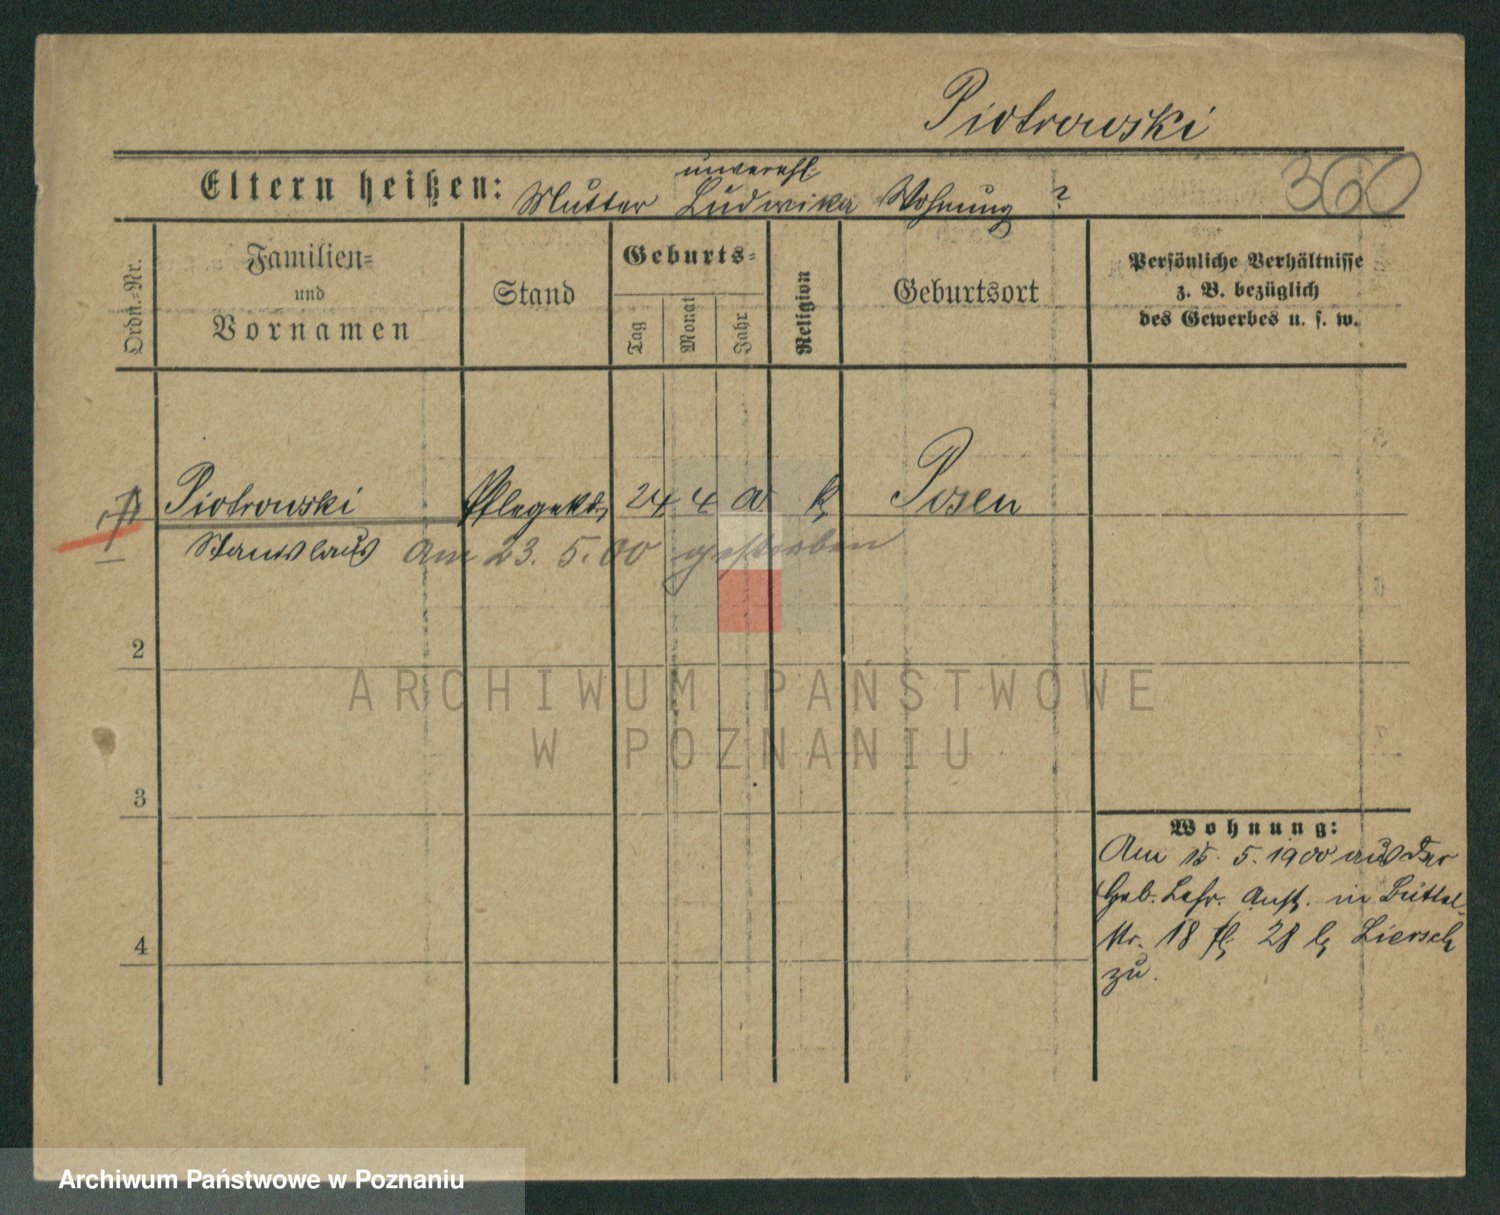 Piotrowski
360
unverehl.
Eltern heißen: Mutter Ludwika Wohnung ?
Ordn.-Nr.
Familien- und Vornamen
Stand
Geburts-
Tag
Monat
Jahr
Religion
Geburtsort
Persönliche Verhältnisse
z. B. bezüglich
des Gewerbes u. s. w.
Piotrowski Pflegekd. 24 4 k Posen
Stanislaus am 23. 5. 00 gestorben
2
3
4
Wohnung:
Am 15. 5. 1900 aus der
Geb. Lehr. Anst. in Büttel-
Str. 18 28 Liersch
zu.
ARCHIWUM PAŃSTWOWE
W POZNANIU
Archiwum Państwowe w Poznaniu